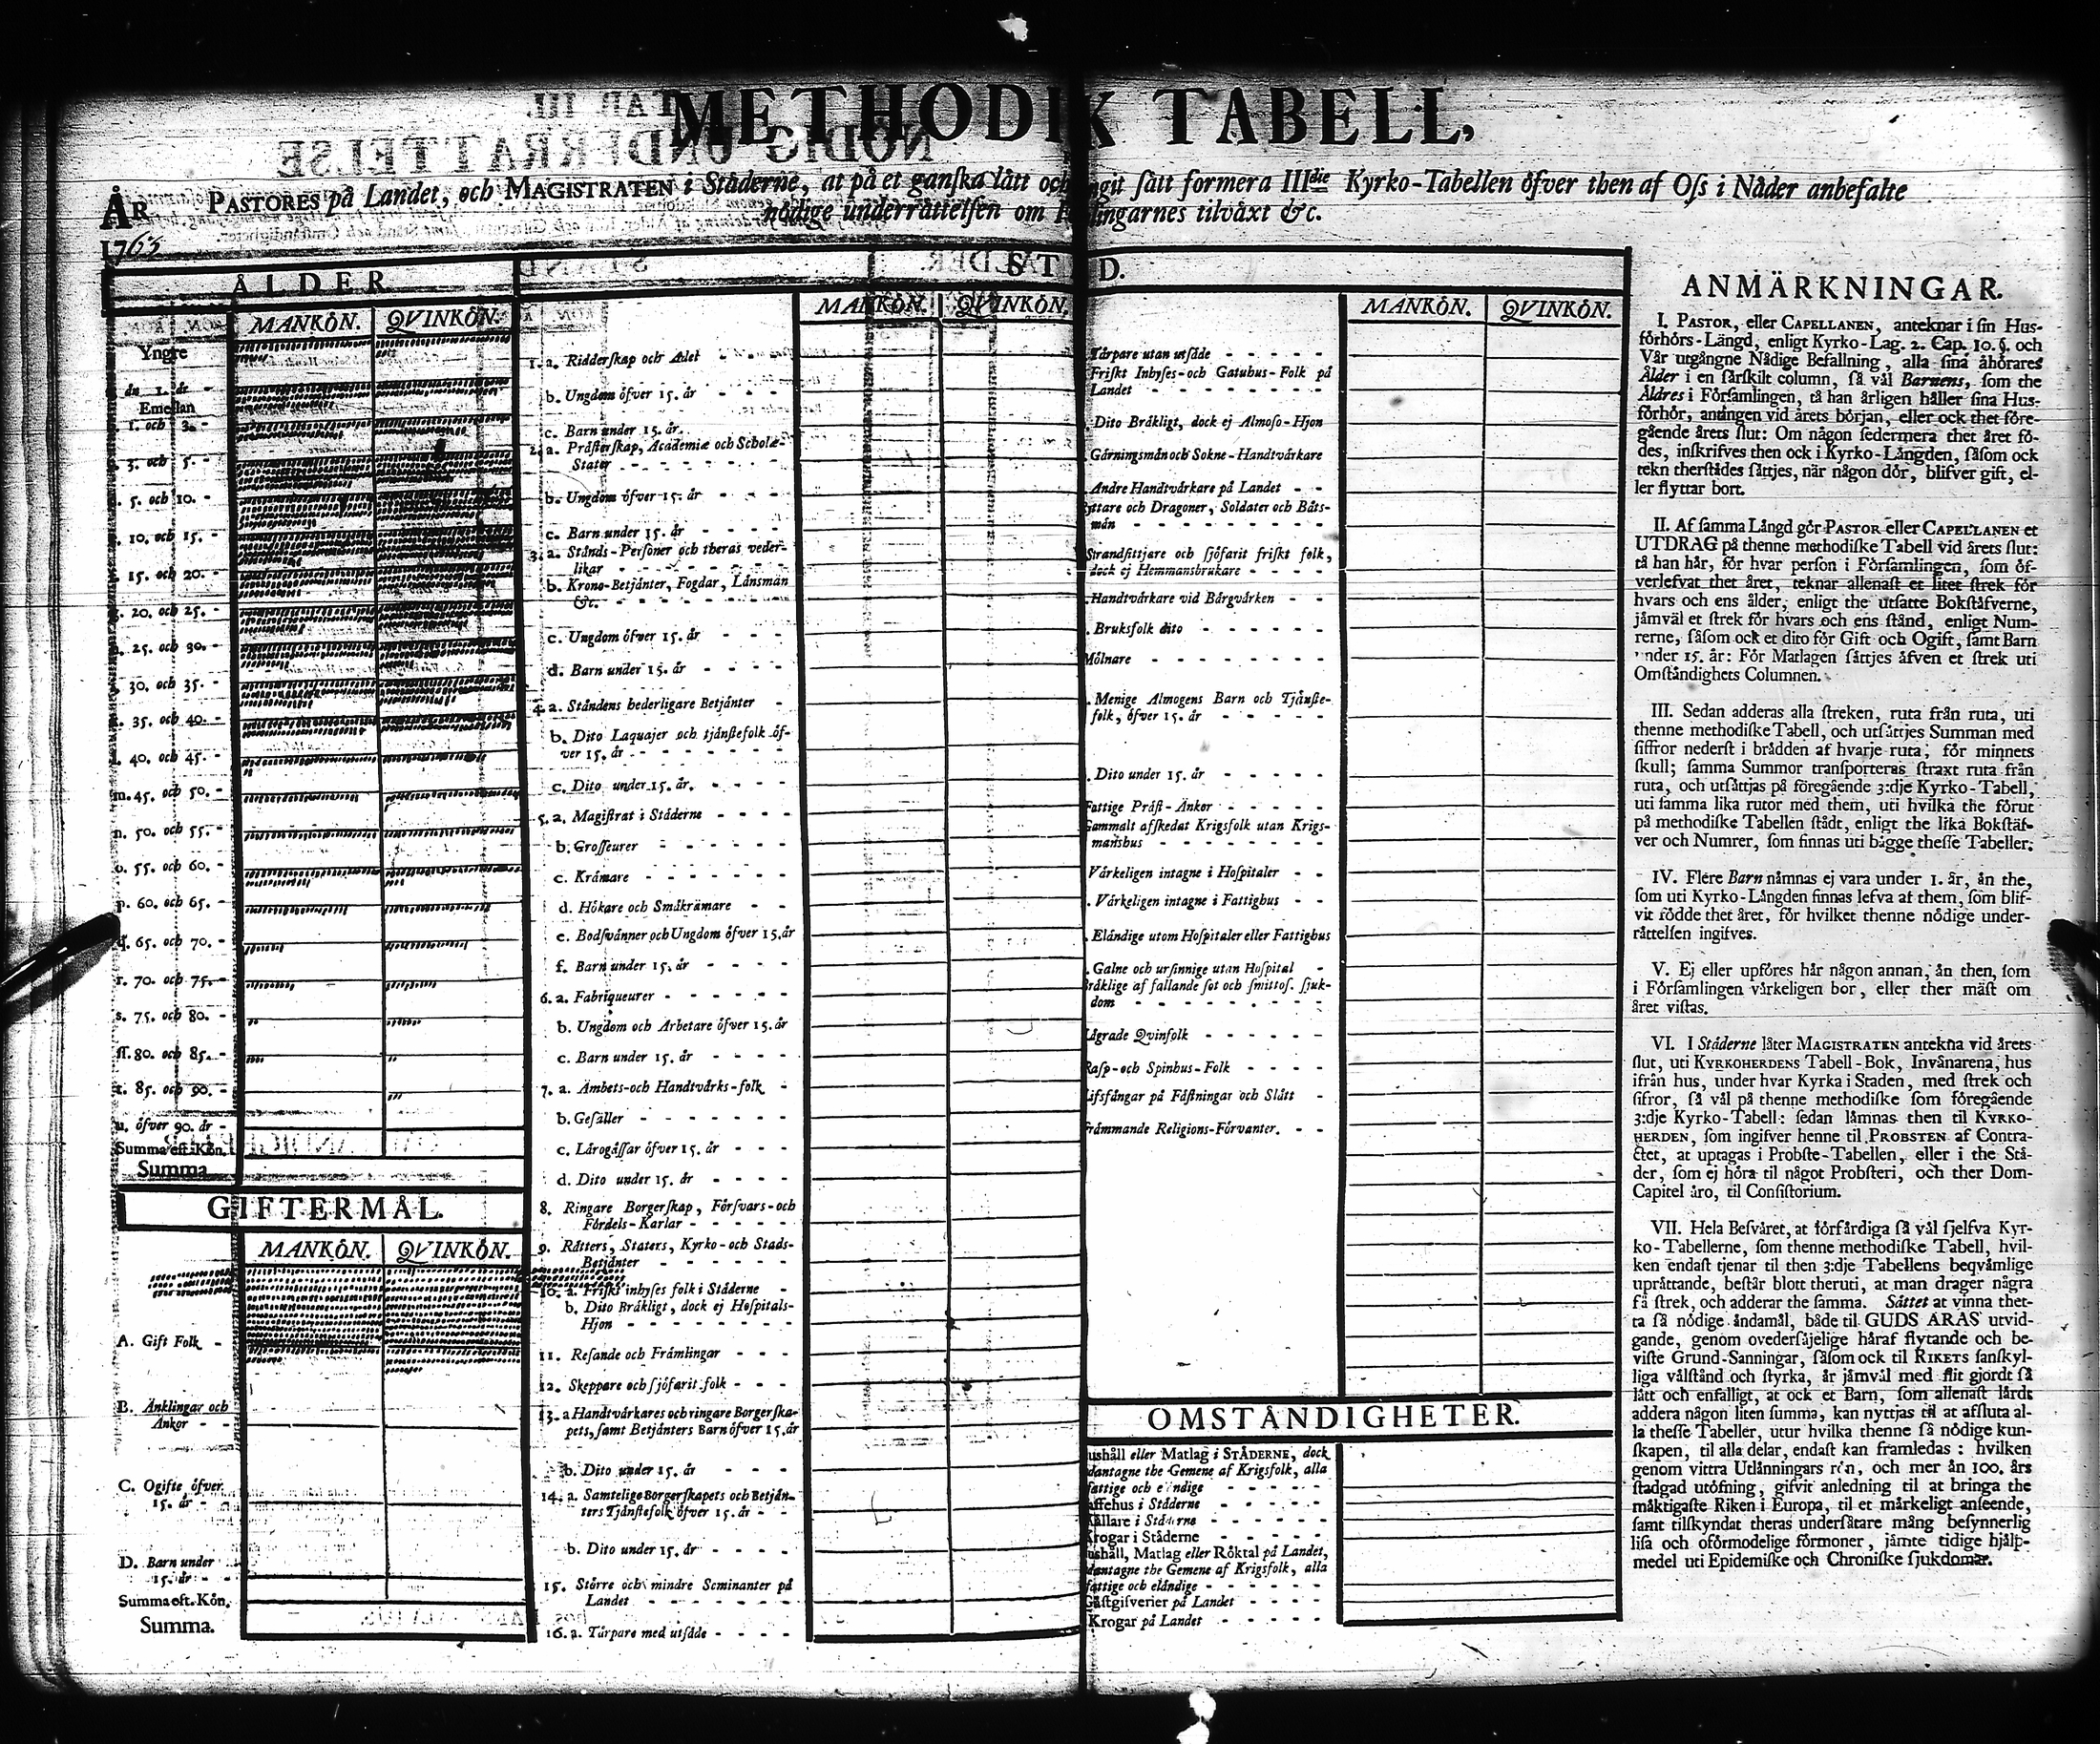 METHODIK TABELL,
ÅR PASTORES på Landet, och MAGISTRATEN i Ståderne, at på et ganſka lått och ſått formera IIIdie Kyrko-Tabellen ôfver then af Oſs i Nåder anbefalte
nôdige underråttelſen om tilvåxt &c.
1763
ÅLDER
MANKÔN. QVINKÔN.
Yngre
ån 1. år -
Emellan
1. och 3. -
3. och 5. -
5. och 10. -
10. och 15. -
15. och 20. -
20. och 25. -
25. och 30. -
30. och 35. -
35. och 40. -
40. och 45. -
m. 45. och 50. -
n. 50. och 55. -
o. 55. och 60. -
p. 60. och 65. -
q. 65. och 70. -
r. 70. och 75. -
s. 75. och 80. -
ſſ. 80. och 85. -
t. 85. och 90. -
u. ôfver 90. år -
Summa eft. Kôn.
Summa
GIFTERMÅL.
MANKÔN. QVINKÔN.
A. Gift Folk -
B. Änklingar och
Ankor - -
C. Ogifte ôfver
15. år - -
D. Barn under
15. år - -
Summa eft. Kôn.
Summa.
ST D.
MANKÔN. QVINKÔN.
1. a. Ridderſkap och Adel - -
b. Ungdom ôfver 15. år - - -
c. Barn under 15. år. - - -
2. a. Pråſterſkap, Academiæ och Scholæ-
Stater - - - - - -
b. Ungdom ôfver 15. år - - -
c. Barn under 15. år - - - -
3. a. Stånds-Perſoner och theras veder-
likar - - - - - - -
b. Krono-Betjånter, Fogdar, Lånsmån
&c. - - - - - - -
c. Ungdom ôfver 15. år - - -
d. Barn under 15. år - - - -
4. a. Ståndens hederligare Betjånter -
b. Dito Laquajer och tjånſtefolk ôf-
ver 15. år - - - - - -
c. Dito under 15. år. - - - -
5. a. Magiſtrat i Ståderne - - -
b. Groſſeurer - - - - -
c. Kråmare - - - - - -
d. Hôkare och Småkråmare - - -
e. Bodſvånner och Ungdom ôfver 15. år
f. Barn under 15. år - - - -
6. a. Fabriqueurer - - - - -
b. Ungdom och Arbetare ôfver 15. år
c. Barn under 15. år - - - -
7. a. Åmbets-och Handtvårks-folk -
b. Geſåller - - - - - -
c. Lårogåſſar ôfver 15. år - - -
d. Dito under 15. år - - - -
8. Ringare Borgerſkap, Fôrſvars-och
Fôrdels-Karlar - - - -
9. Råtters, Staters, Kyrko-och Stads-
Betjånter - - - - - -
10. a. Friſkt inhyſes folk i Ståderne -
b. Dito Bråkligt, dock ej Hoſpitals-
Hjon - - - - - - -
11. Reſande och Fråmlingar - - -
12. Skeppare och ſjôfarit folk - - -
13. a Handtvårkares och ringare Borgerſka-
pets, ſamt Betjånters Barn ôfver 15. år
b. Dito under 15. år - - -
14. a. Samtelige Borgerſkapets och Betjån-
ters Tjånſtefolk ôfver 15. år - -
b. Dito under 15. år - - - -
15. Stôrre och mindre Seminanter på
Landet - - - - - -
16. a. Tårpare med utſåde - - - -
MANKÔN. QVINKÔN.
Tårpare utan utſåde - - - - -
Friſkt Inhyſes-och Gatuhus-Folk på
Landet - - - - - - -
Dito Bråkligt, dock ej Almoſo-Hjon
Gårningsmån och Sokne-Handtvårkare
Andre Handtvårkare på Landet - -
ttare och Dragoner, Soldater och Båts-
mån - - - - - - -
Strandſittjare och ſjôfarit friſkt folk,
dock ej Hemmansbrukare - - - -
Handtvårkare vid Bårgvårken - -
Bruksfolk dito - - - - - -
Môlnare - - - - - - -
Menige Almogens Barn och Tjånſte-
folk, ôfver 15. år - - - - -
Dito under 15. år - - - - -
Fattige Pråſt-Ånkor - - - - -
Gammalt afſkedat Krigsfolk utan Krigs-
manshus - - - - - - -
Vårkeligen intagne i Hoſpitaler - -
Vårkeligen intagne i Fattighus - -
Elåndige utom Hoſpitaler eller Fattighus
Galne och urſinnige utan Hoſpital -
Bråklige af fallande ſot och ſmittoſ. ſjuk-
dom - - - - - - -
Lågrade Qvinfolk - - - - -
Raſp-och Spinhus-Folk - - - -
Lifsfångar på Fåſtningar och Slått -
Fråmmande Religions-Fôrvanter. - -
OMSTÅNDIGHETER.
ushåll eller Matlag i STÅDERNE, dock
dantagne the Gemene af Krigsfolk, alla
fattige och elåndige - - - - -
affehus i Ståderne - - - - -
Kållare i Ståderne - - - - -
Krogar i Ståderne - - - - -
ushåll, Matlag eller Rôktal på Landet,
dantagne the Gemene af Krigsfolk, alla
fattige och elåndige - - - - -
Gåſtgifverier på Landet - - - -
Krogar på Landet - - - - -
ANMÄRKNINGAR.
I. PASTOR, eller CAPELLANEN, anteknar i ſin Hus-
fôrhôrs-Långd, enligt Kyrko-Lag. 2. Cap. 10. §. och
Vår utgångne Nådige Befallning, alla ſina åhôrares
Ålder i en ſårſkilt column, ſå vål Barnens, ſom the
Åldres i Fôrſamlingen, tå han årligen håller ſina Hus-
fôrhôr, antingen vid årets bôrjan, eller ock thet fôre-
gående årets ſlut: Om någon ſedermera thet året fô-
des, inſkrifves then ock i Kyrko-Långden, ſåſom ock
tekn therſtådes ſåttjes, når någon dôr, blifver gift, el-
ler flyttar bort.
II. Af ſamma Långd gôr PASTOR eller CAPELLANEN et
UTDRAG på thenne methodiſke Tabell vid årets ſlut:
tå han hår, fôr hvar perſon i Fôrſamlingen, ſom ôf-
verlefvat thet året, teknar allenaſt et litet ſtrek fôr
hvars och ens ålder, enligt the utſatte Bokſtåfverne,
jåmvål et ſtrek fôr hvars och ens ſtånd, enligt Num-
rerne, ſåſom ock et dito fôr Gift och Ogift, ſamt Barn
under 15. år: Fôr Matlagen ſåttjes åfven et ſtrek uti
Omſtåndighets Columnen.
III. Sedan adderas alla ſtreken, ruta från ruta, uti
thenne methodiſke Tabell, och utſåttjes Summan med
ſiffror nederſt i brådden af hvarje ruta, fôr minnets
ſkull; ſamma Summor tranſporteras ſtraxt ruta från
ruta, och utſåttjas på fôregående 3:dje Kyrko-Tabell,
uti ſamma lika rutor med them, uti hvilka the fôrut
på methodiſke Tabellen ſtådt, enligt the lika Bokſtåf-
ver och Numrer, ſom finnas uti bågge theſſe Tabeller.
IV. Flere Barn nåmnas ej vara under 1. år, ån the,
ſom uti Kyrko-Långden finnas lefva af them, ſom blif-
vit fôdde thet året, fôr hvilket thenne nôdige under-
råttelſen ingifves.
V. Ej eller upfôres hår någon annan, ån then, ſom
i Fôrſamlingen vårkeligen bor, eller ther måſt om
året viſtas.
VI. I Ståderne låter MAGISTRATEN antekna vid årets
ſlut, uti KYRKOHERDENS Tabell-Bok, Invånarena, hus
ifrån hus, under hvar Kyrka i Staden, med ſtrek och
ſifror, ſå vål på thenne methodiſke ſom fôregående
3:dje Kyrko-Tabell: ſedan låmnas then til KYRKO-
HERDEN, ſom ingifver henne til PROBSTEN af Contra-
ctet, at uptagas i Probſte-Tabellen, eller i the Stå-
der, ſom ej hôra til något Probſteri, och ther Dom-
Capitel åro, til Conſiſtorium.
VII. Hela Beſvåret, at fôrfårdiga ſå vål ſjelfva Kyr-
ko-Tabellerne, ſom thenne methodiſke Tabell, hvil-
ken endaſt tjenar til then 3:dje Tabellens beqvåmlige
upråttande, beſtår blott theruti, at man drager några
få ſtrek, och adderar the ſamma. Såttet at vinna thet-
ta ſå nôdige åndamål, både til GUDS ÄRAS utvid-
gande, genom overſåjelige håraf flytande och be-
viſte Grund-Sanningar, ſåſom ock til RIKETS ſanſkyl-
liga vålſtånd och ſtyrka, år jåmvål med flit gjordt ſå
lått och enfalligt, at ock et Barn, ſom allenaſt lårdt
addera någon liten ſumma, kan nyttjas til at afſluta al-
la theſſe Tabeller, utur hvilka thenne ſå nôdige kun-
ſkapen, til alla delar, endaſt kan framledas: hvilken
genom vittra Utlånningars rôn, och mer ån 100. års
ſtadgad utôfning, gifvit anledning til at bringa the
måktigaſte Riken i Europa, til et mårkeligt anſeende,
ſamt tilſkyndat theras underſåtare mång beſynnerlig
liſa och ofôrmodelige fôrmoner, jåmte tidige hjålp-
medel uti Epidemiſke och Chroniſke ſjukdomar.